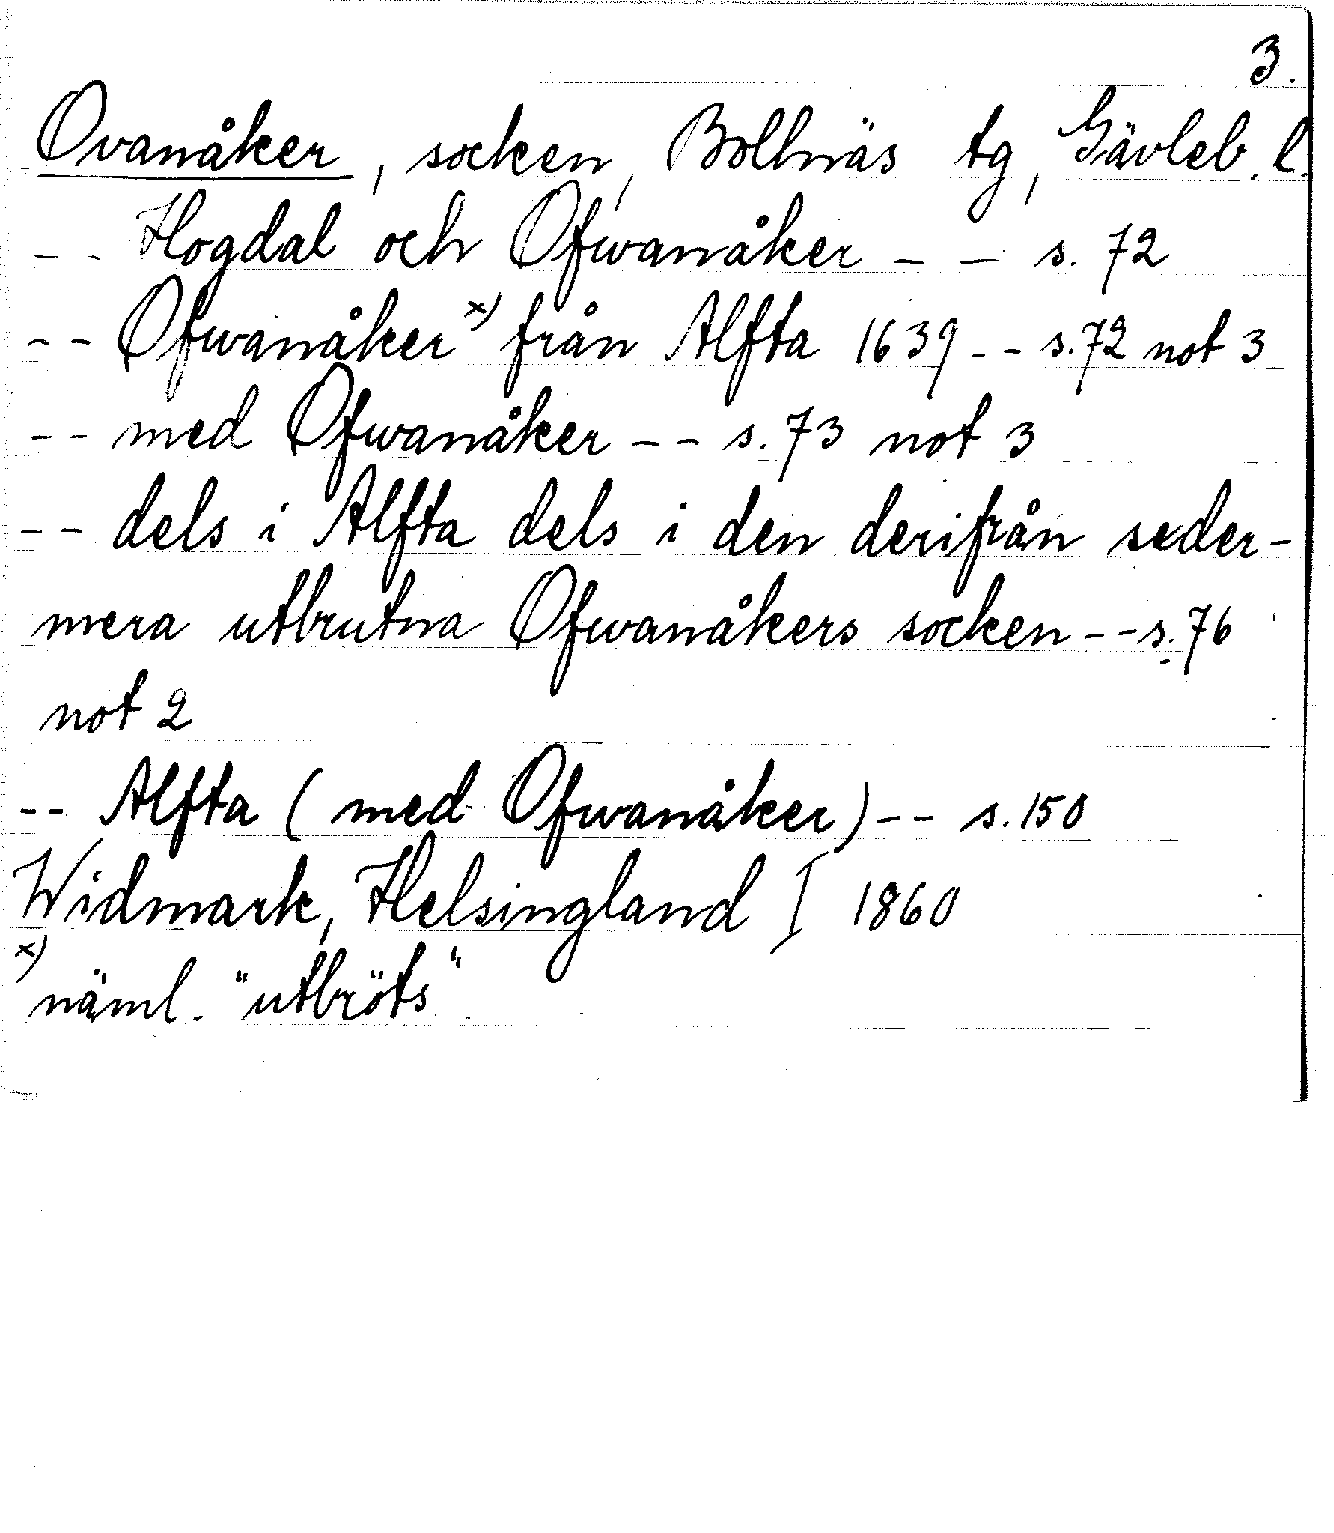 3.
Ovanåker, socken, Bollnäs tg, Gävleb. l.
-- Hogdal och Ofwanåker -- s. 72
-- Ofwanåker x) från Alfta 1639 -- s. 72 not 3
-- med Ofwanåker -- s. 73 not 3
-- dels i Alfta dels i den derifrån seder-
mera utbrutna Ofwanåkers socken -- s. 76
not 2
-- Alfta (med Ofwanåker) -- s. 150
Widmark, Helsingland I 1860
x) näml. "utbröts"